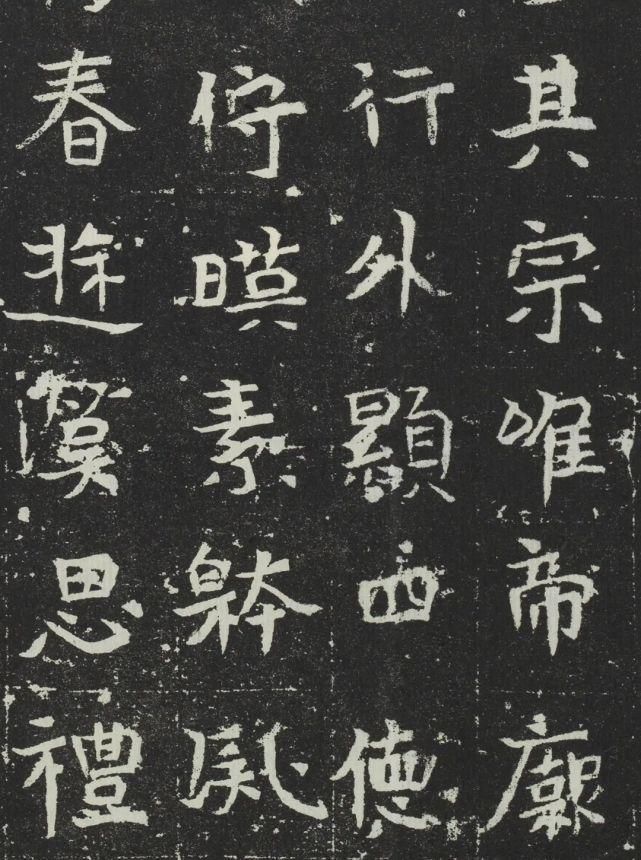 其宗唯帝
行外顯四德
佇暎素
春遊思禮